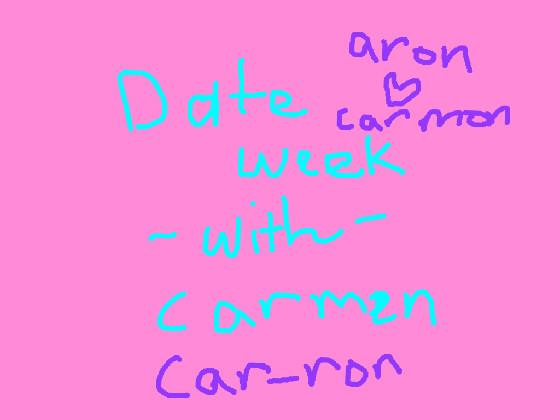 aron
♡
carmon
Date
week
- with -
carmen
car-ron